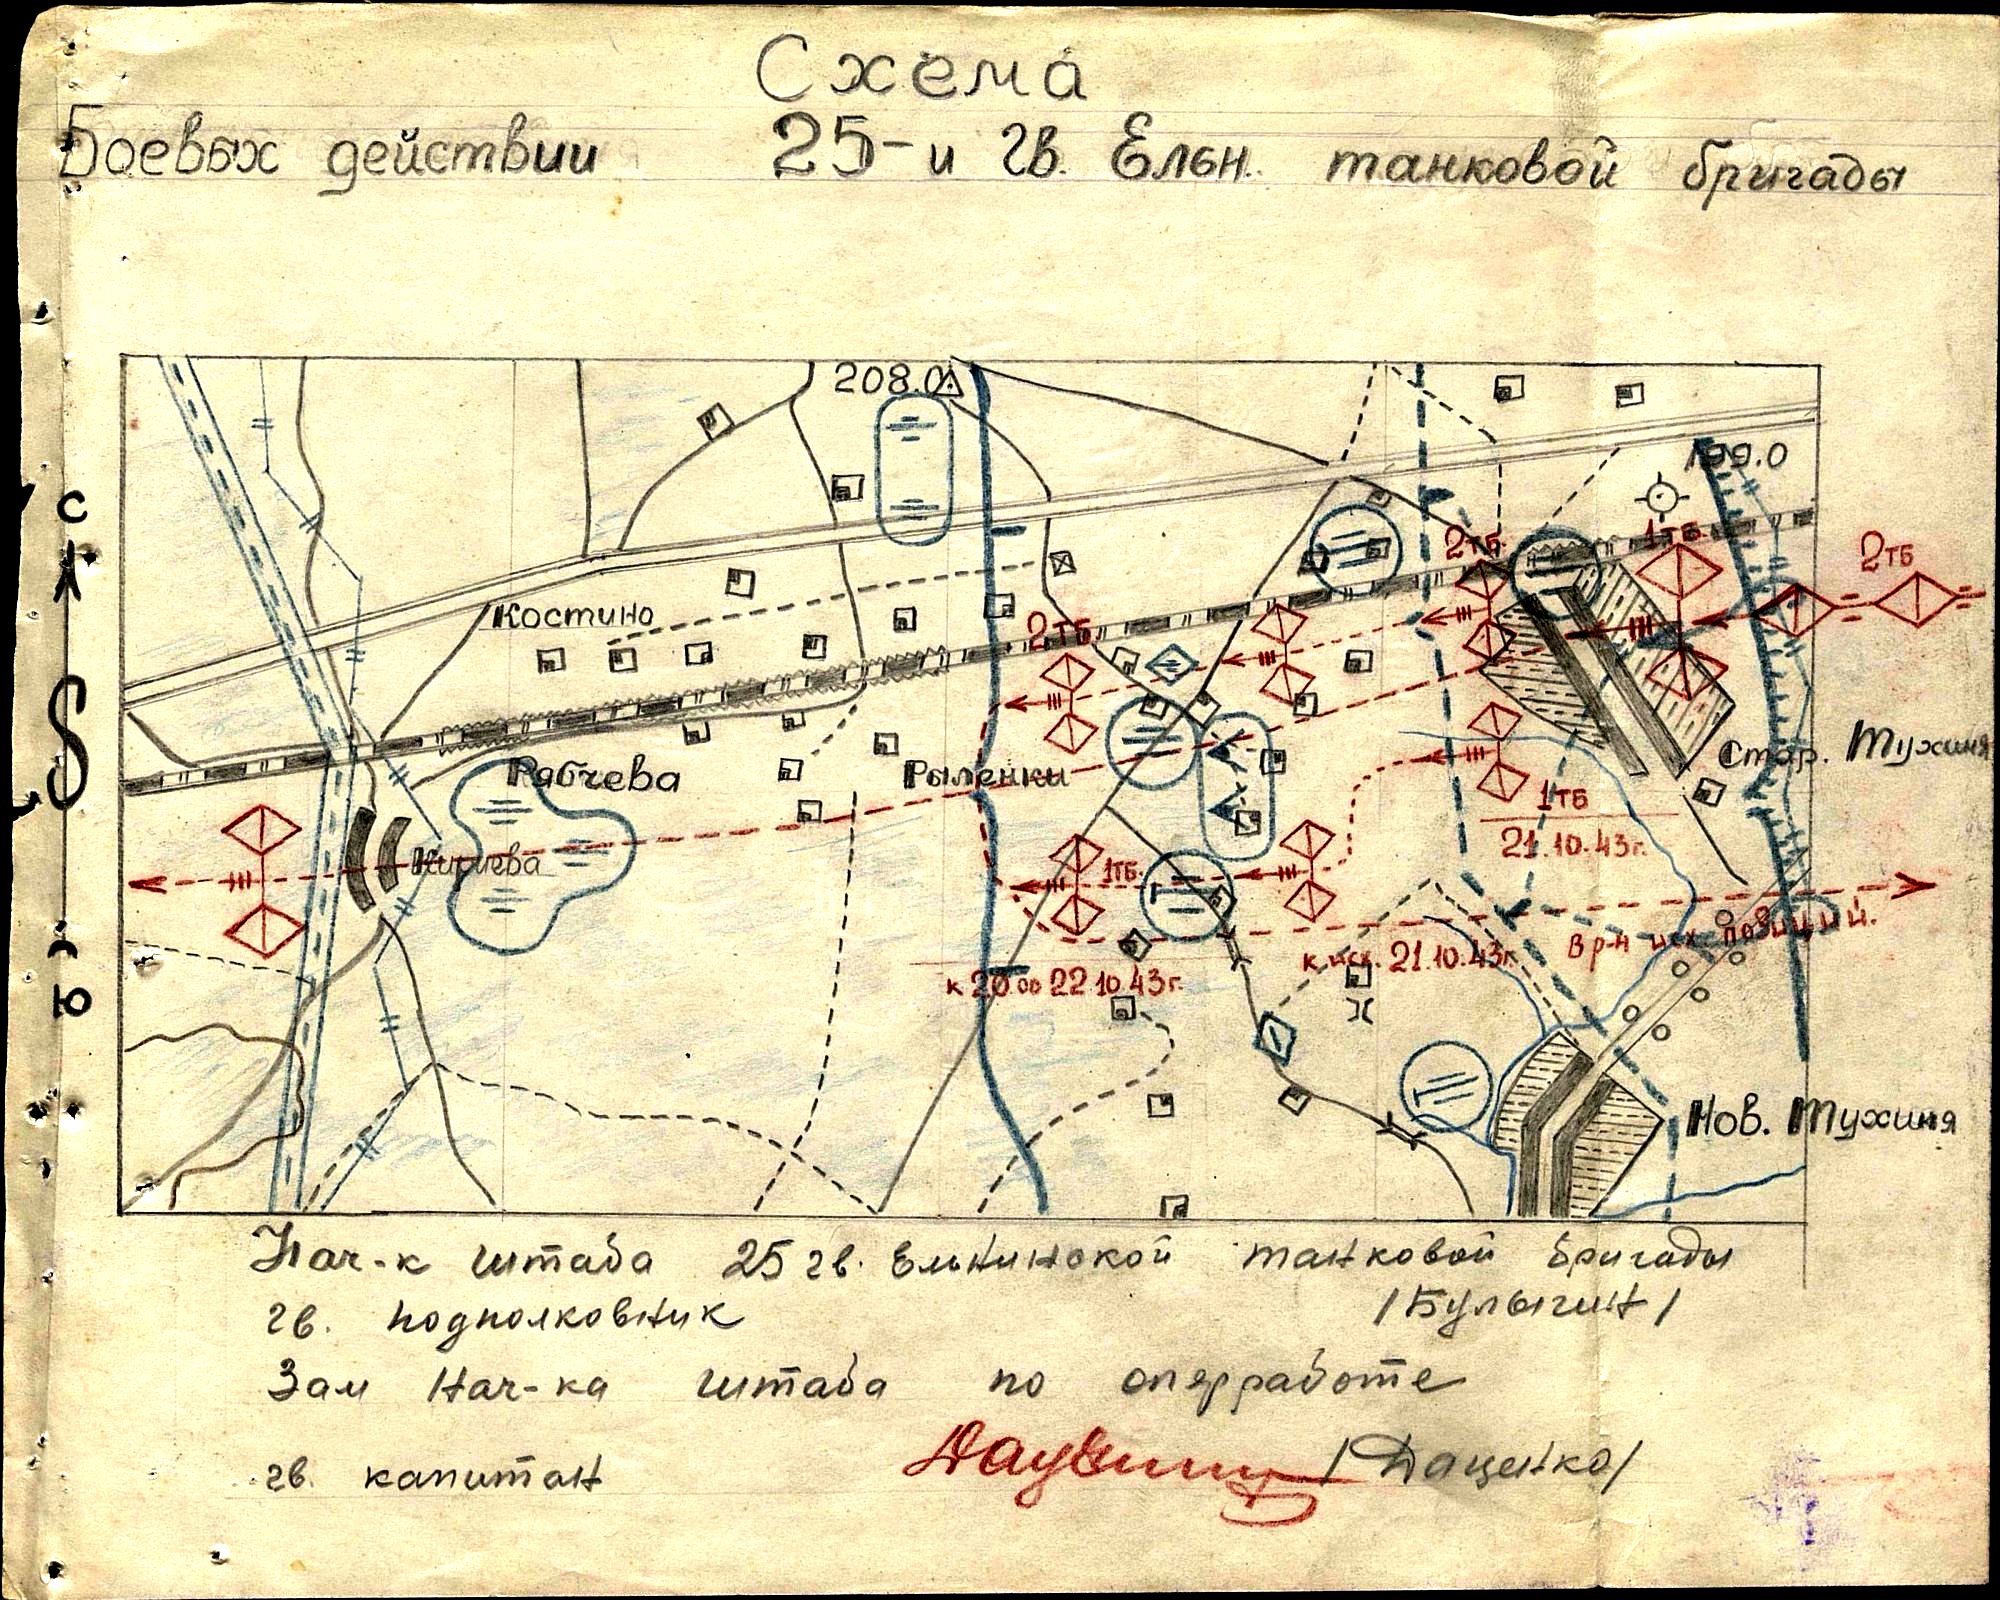 Схема
Боевых действии 25-и Гв. Ельн. танковой бригады
208.0
199.0
2тб.
1тб.
2тб
Костино
2тб
Стар. Тухиня
Рябчева
Рыленки
1тб
21.10.43г.
Кириева
1тб.
в р-н исх позиций.
к исх. 21.10.43г.
к 20.00 22 10.43г.
Нов. Тухиня
с
ю
Нач-к штаба 25 гв. Ельнинской танковой бригады
гв. подполковник /Булыгин/
Зам Нач-ка штаба по оперработе
гв. капитан /Даценко/